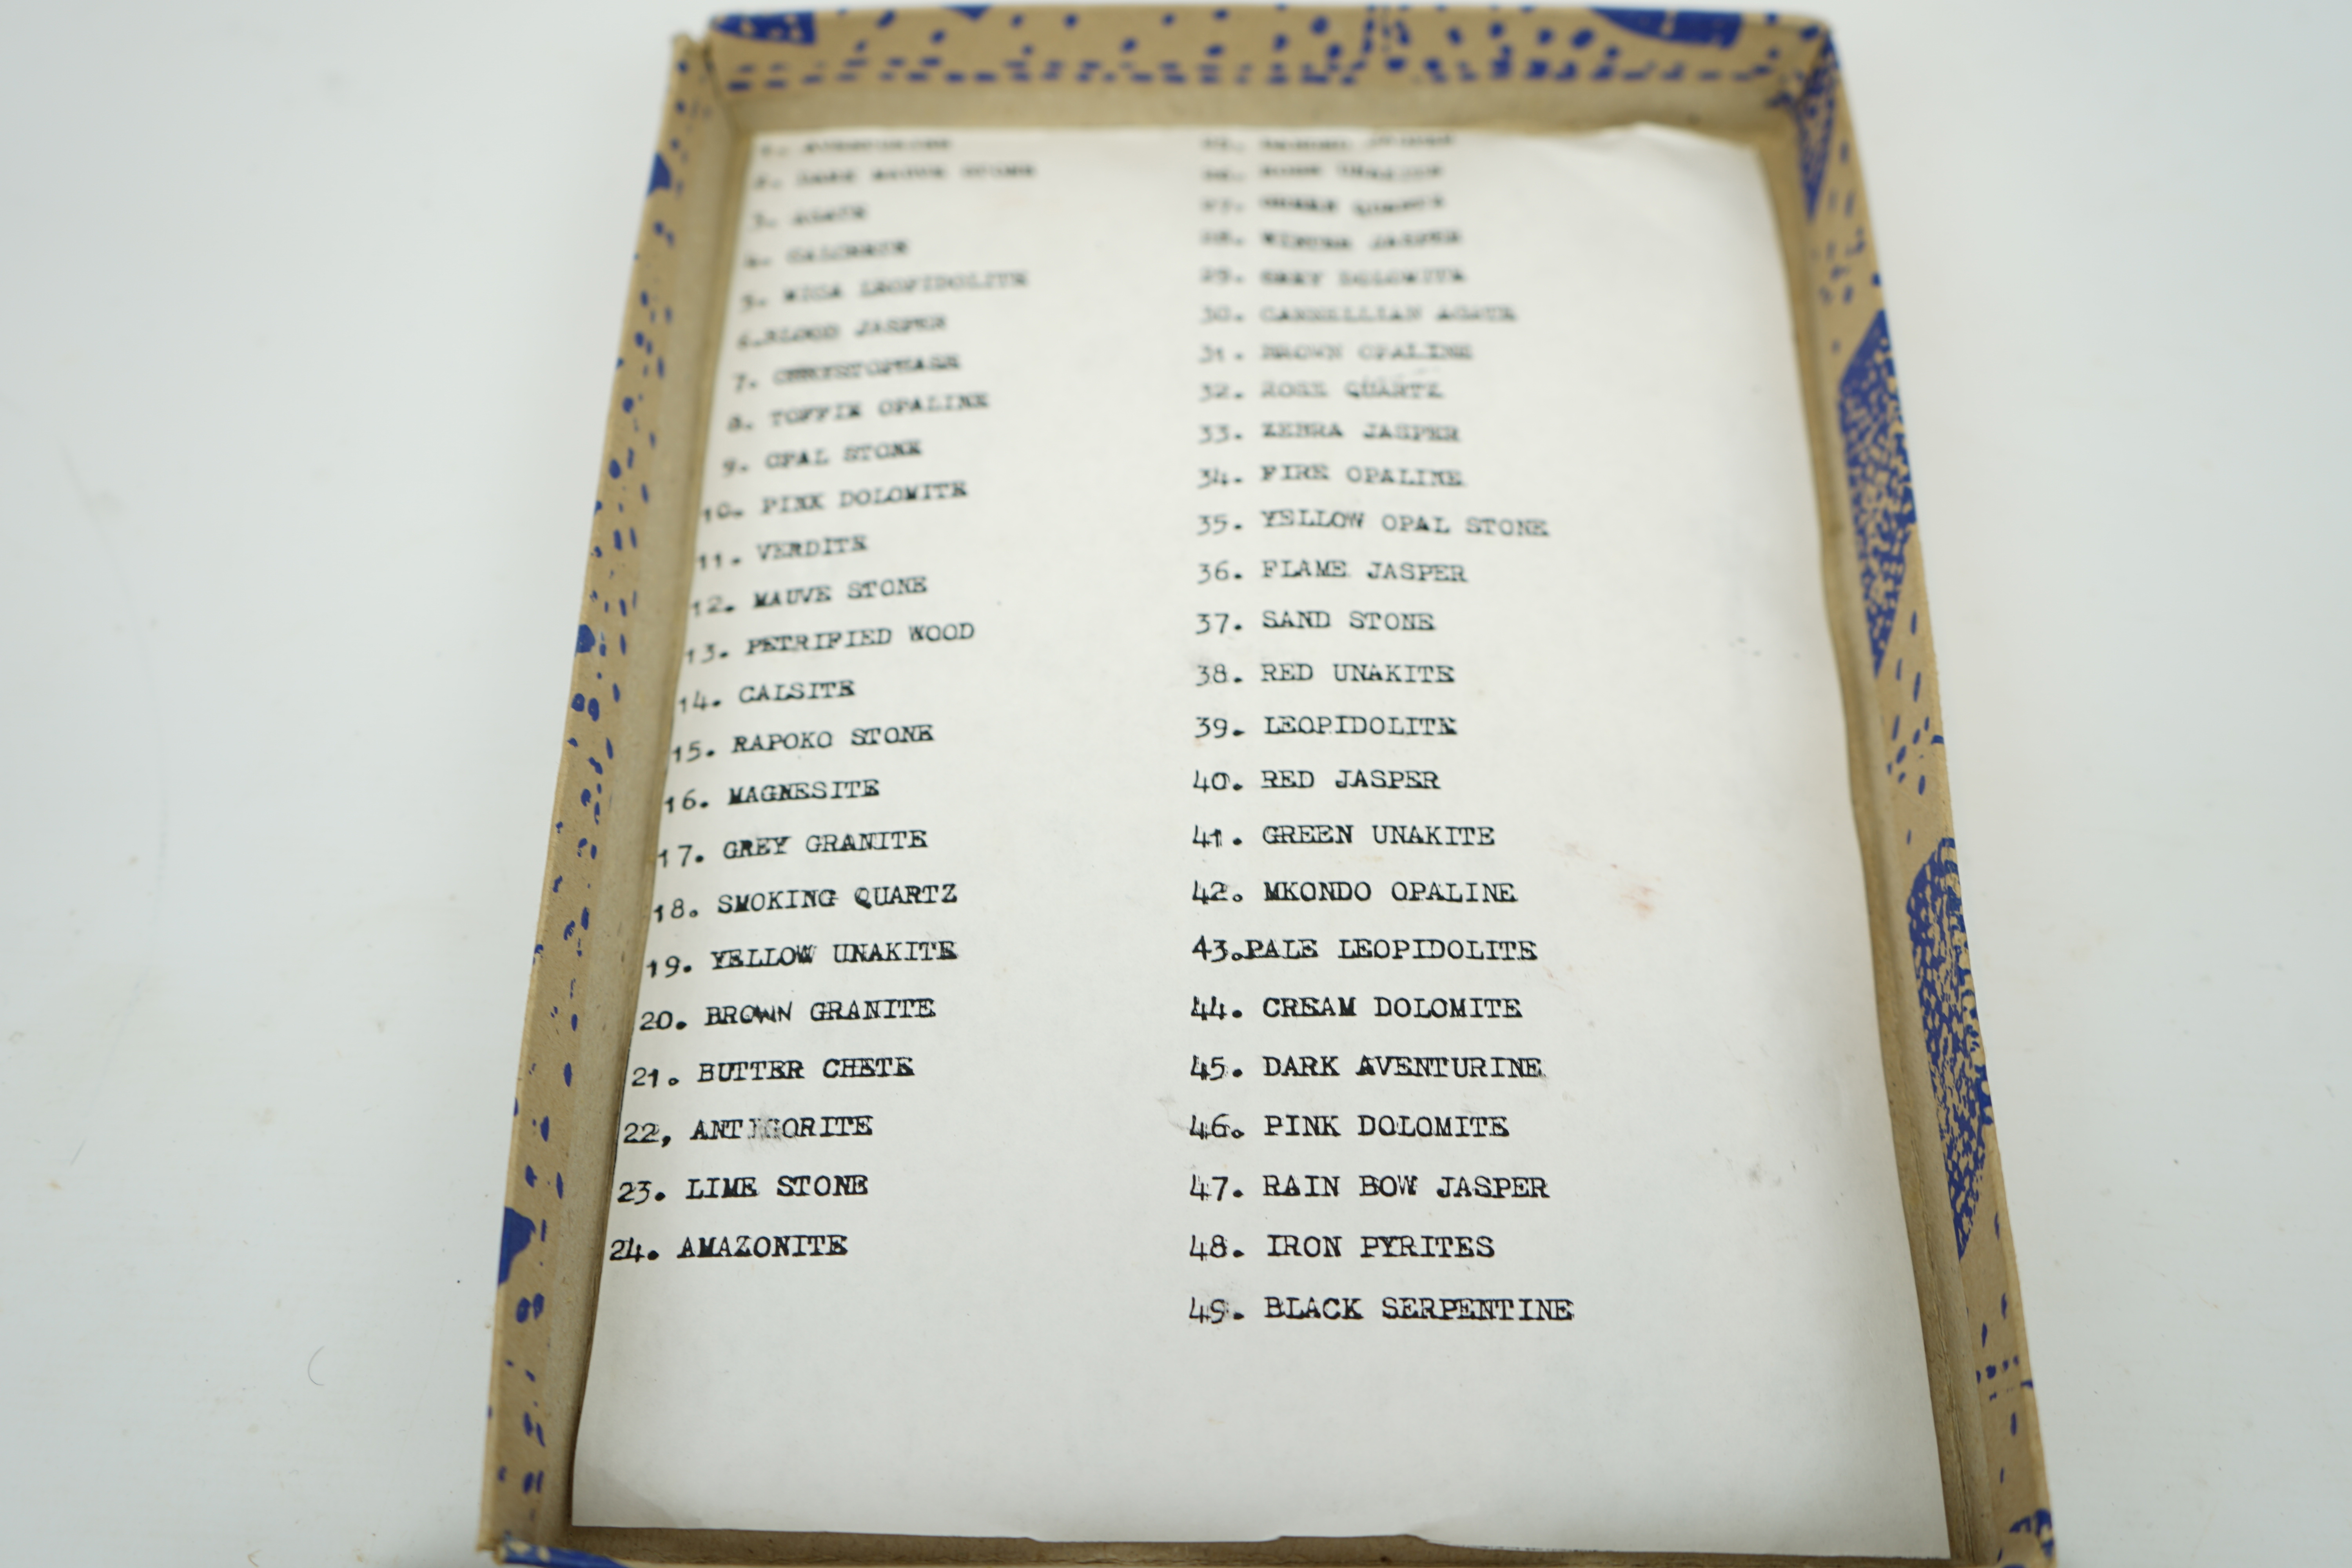 1. AVENTURINE
2. DARK MAUVE STONE
3. AGATE
4.
5. MICA LEOPIDOLITE
6.BLOOD JASPER
7.
8. TOFFIE OPALINE
9. OPAL STONE
10. PINK DOLOMITE
11. VERDITE
12. MAUVE STONE
13. PETRIFIED WOOD
14. CALSITE
15. RAPOKO STONE
16. MAGNESITE
17. GREY GRANITE
18. SMOKING QUARTZ
19. YELLOW UNAKITE
20. BROWN GRANITE
21. BUTTER CHETE
22, ANTIGORITE
23. LIME STONE
24. AMAZONITE
25.
26. UNAKITE
27. GREEN QUARTZ
28. JASPER
29. GREY DOLOMITE
30. AGATE
31. BROWN OPALINE
32. ROSE QUARTZ
33. ZEBRA JASPER
34. FIRE OPALINE
35. YELLOW OPAL STONE
36. FLAME JASPER
37. SAND STONE
38. RED UNAKITE
39. LEOPIDOLITE
40. RED JASPER
41. GREEN UNAKITE
42. MKONDO OPALINE
43.PALE LEOPIDOLITE
44. CREAM DOLOMITE
45. DARK AVENTURINE
46. PINK DOLOMITE
47. RAIN BOW JASPER
48. IRON PYRITES
49. BLACK SERPENTINE